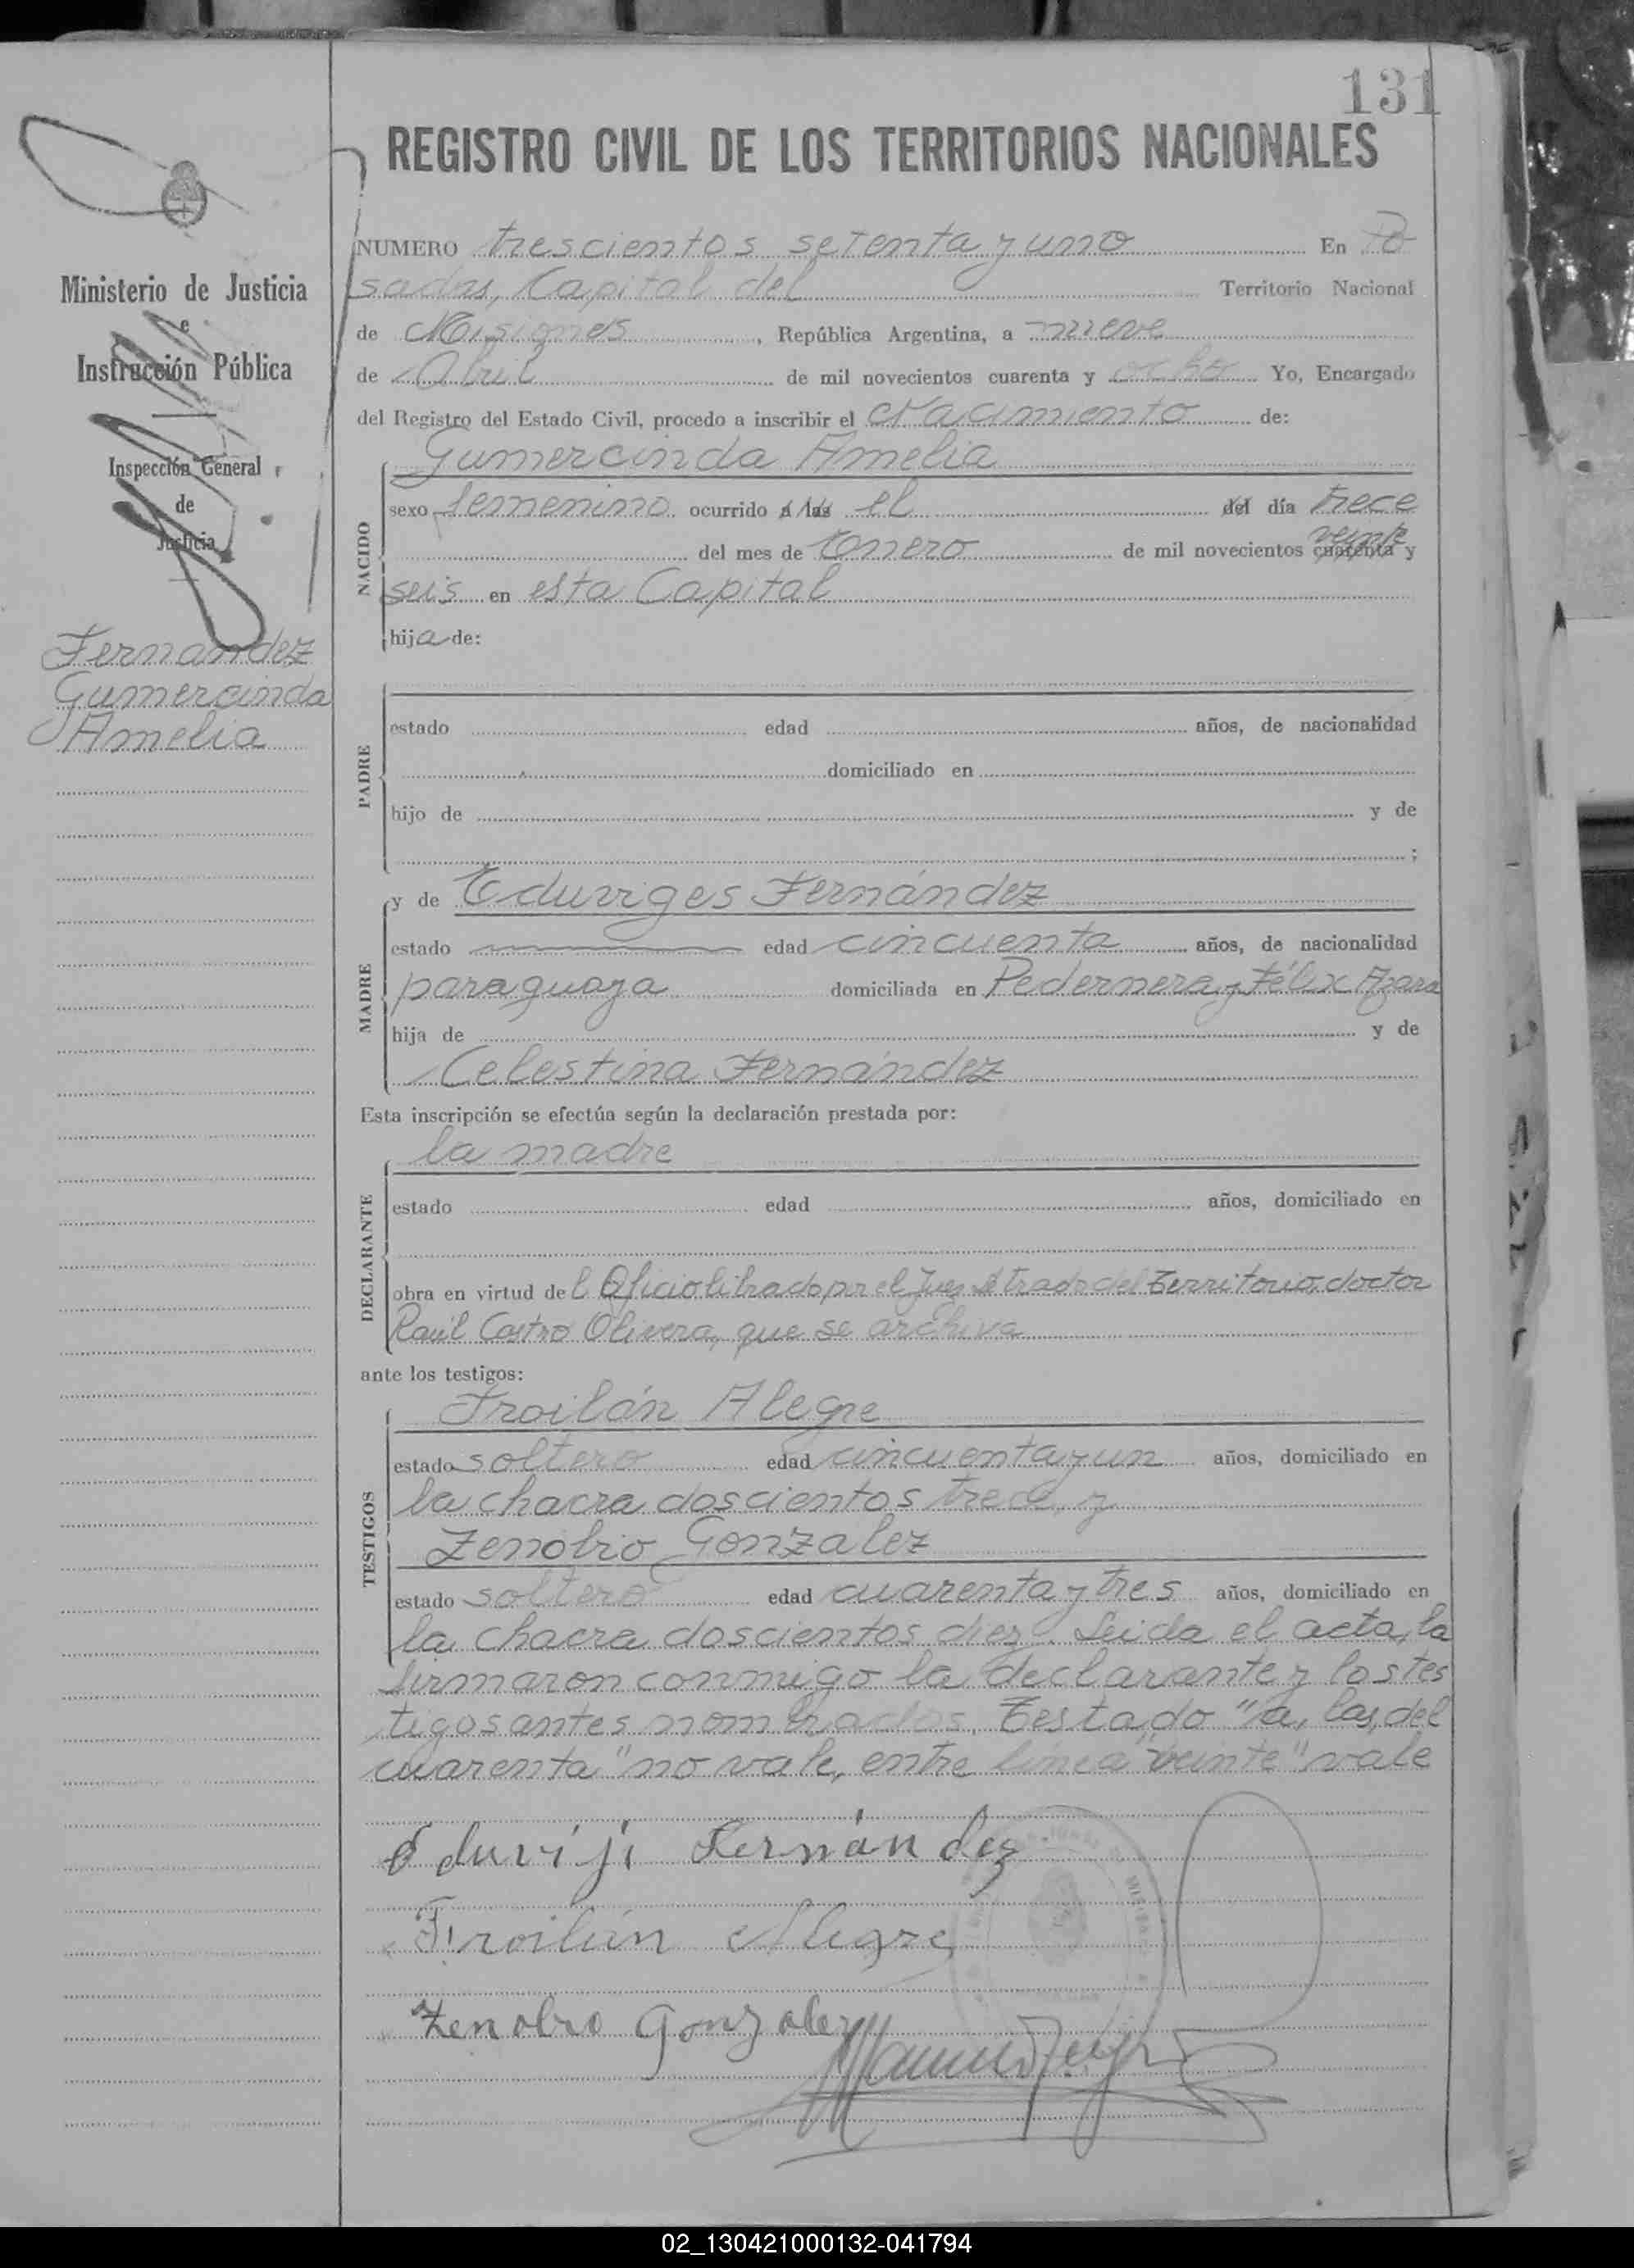 131
REGISTRO CIVIL DE LOS TERRITORIOS NACIONALES
NUMERO trescientos setenta y uno En Po
sadas, Capital del Territorio Nacional
de Misiones, República Argentina, a nueve
de Abril de mil novecientos cuarenta y ocho Yo, Encargado
del Registro del Estado Civil, procedo a inscribir el Nacimiento de:
Gumercinda Amelia
NACIDO
sexo femenino ocurrido a las el del día trece
veinte
del mes de Enero de mil novecientos cuarenta y
seis en esta Capital
hija de:
PADRE
estado edad años, de nacionalidad
domiciliado en
hijo de y de
;
MADRE
y de Eduviges Fernández
estado edad cincuenta años, de nacionalidad
paraguaya domiciliada en Pedernera y Félix Azara
hija de y de
Celestina Fernández
Esta inscripción se efectúa según la declaración prestada por:
la madre
DECLARANTE
estado edad años, domiciliado en
obra en virtud del Oficio librado por el Juez Letrado del Territorio, doctor
Raúl Castro Olivera, que se archiva
ante los testigos:
Froilán Alegre
TESTIGOS
estado soltero edad cincuenta y un años, domiciliado en
la chacra doscientos trece, y
Zenobio Gonzalez
estado soltero edad cuarenta y tres años, domiciliado en
la chacra doscientos diez. Leida el acta, la
firmaron conmigo la declarante y los tes
tigos antes nombrados. Testado "a, las, del
cuarenta" no vale, entre linea "veinte" vale
Eduviji Fernández
Froilán Alegre
Zenobio Gonzalez
Ministerio de Justicia
e
Instrucción Pública
Inspección General
de
Justicia
Fernandez
Gumercinda
Amelia
02_130421000132-041794